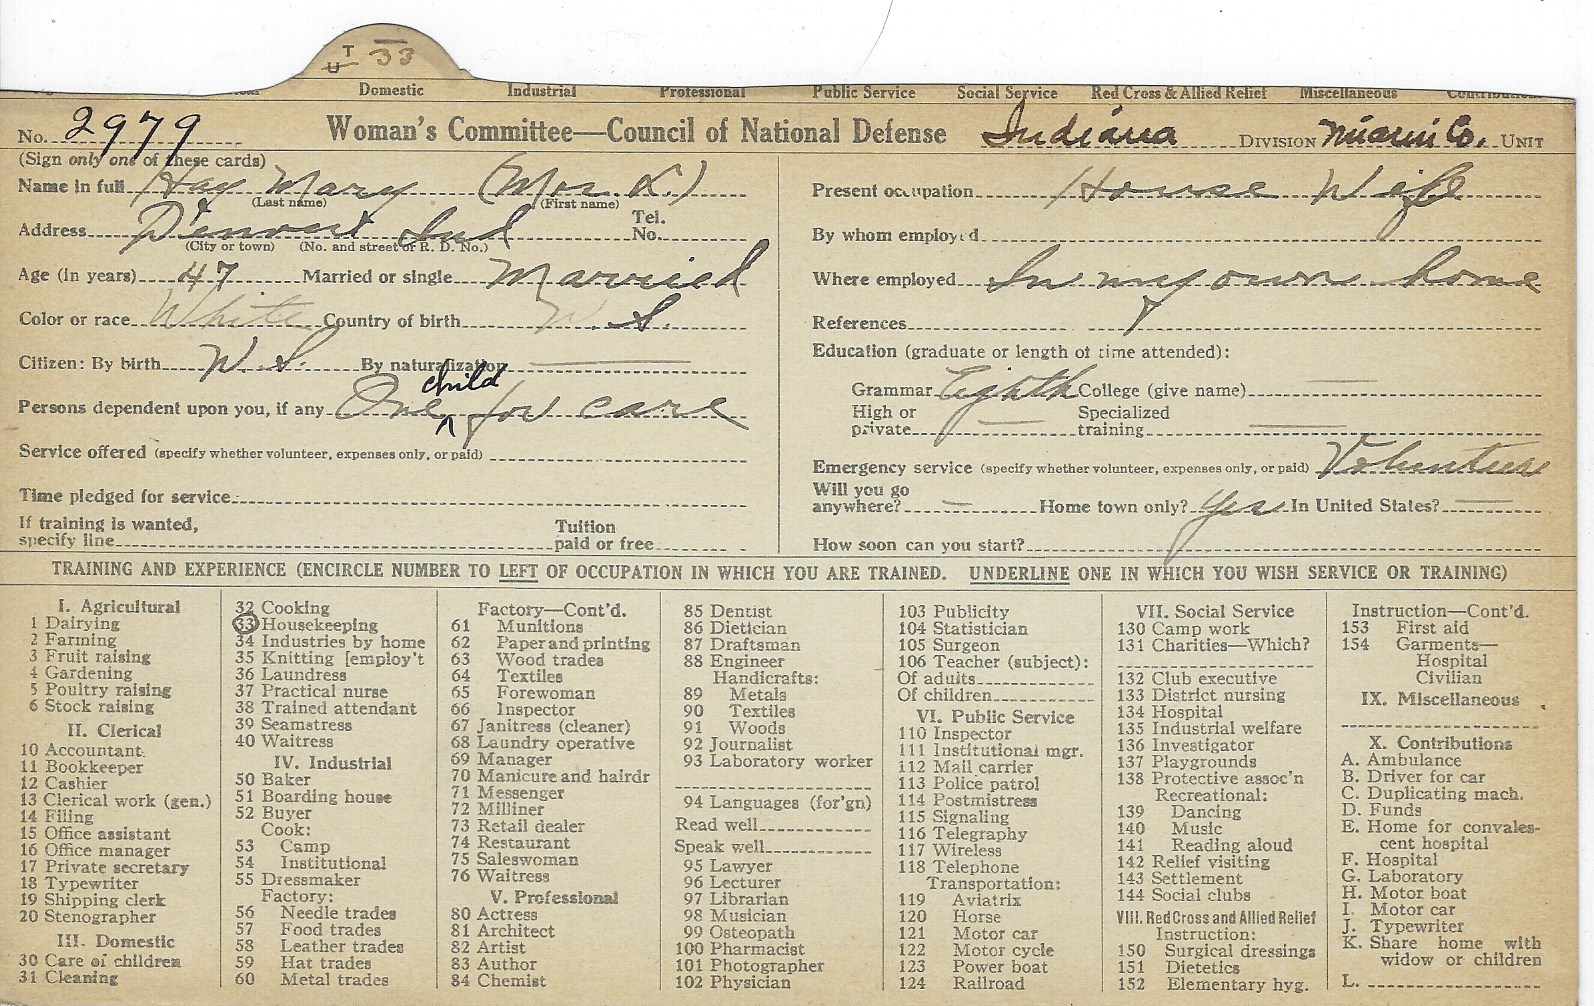 T 33
U
Domestic Industrial Professional Public Service Social Service Red Cross & Allied Relief Miscellaneous
No. 2979 Woman's Committee—Council of National Defense Indiana DIVISION Miami Co. UNIT
(Sign only one of these cards)
Name in full Hay Mary (Mrs. L.)
(Last name) (First name)
Address Denver Ind Tel. No.
(City or town) (No. and street or R. D. No.)
Age (in years) 47 Married or single Married
Color or race White Country of birth U. S.
Citizen: By birth U. S. By naturalization
child
Persons dependent upon you, if any One for care
Service offered (specify whether volunteer, expenses only, or paid)
Time pledged for service
If training is wanted, specify line Tuition paid or free
Present occupation House Wife
By whom employed
Where employed In my own home
References
Education (graduate or length of time attended):
Grammar Eighth College (give name)
High or private Specialized training
Emergency service (specify whether volunteer, expenses only, or paid) Volunteer
Will you go anywhere? Home town only? Yes In United States?
How soon can you start?
TRAINING AND EXPERIENCE (ENCIRCLE NUMBER TO LEFT OF OCCUPATION IN WHICH YOU ARE TRAINED. UNDERLINE ONE IN WHICH YOU WISH SERVICE OR TRAINING)
I. Agricultural
1 Dairying
2 Farming
3 Fruit raising
4 Gardening
5 Poultry raising
6 Stock raising
II. Clerical
10 Accountant
11 Bookkeeper
12 Cashier
13 Clerical work (gen.)
14 Filing
15 Office assistant
16 Office manager
17 Private secretary
18 Typewriter
19 Shipping clerk
20 Stenographer
III. Domestic
30 Care of children
31 Cleaning
32 Cooking
33 Housekeeping
34 Industries by home
35 Knitting [employ't
36 Laundress
37 Practical nurse
38 Trained attendant
39 Seamstress
40 Waitress
IV. Industrial
50 Baker
51 Boarding house
52 Buyer
Cook:
53 Camp
54 Institutional
55 Dressmaker
Factory:
56 Needle trades
57 Food trades
58 Leather trades
59 Hat trades
60 Metal trades
Factory—Cont'd.
61 Munitions
62 Paper and printing
63 Wood trades
64 Textiles
65 Forewoman
66 Inspector
67 Janitress (cleaner)
68 Laundry operative
69 Manager
70 Manicure and hairdr
71 Messenger
72 Milliner
73 Retail dealer
74 Restaurant
75 Saleswoman
76 Waitress
V. Professional
80 Actress
81 Architect
82 Artist
83 Author
84 Chemist
85 Dentist
86 Dietician
87 Draftsman
88 Engineer
Handicrafts:
89 Metals
90 Textiles
91 Woods
92 Journalist
93 Laboratory worker
94 Languages (for'gn)
Read well
Speak well
95 Lawyer
96 Lecturer
97 Librarian
98 Musician
99 Osteopath
100 Pharmacist
101 Photographer
102 Physician
103 Publicity
104 Statistician
105 Surgeon
106 Teacher (subject):
Of adults
Of children
VI. Public Service
110 Inspector
111 Institutional mgr.
112 Mail carrier
113 Police patrol
114 Postmistress
115 Signaling
116 Telegraphy
117 Wireless
118 Telephone
Transportation:
119 Aviatrix
120 Horse
121 Motor car
122 Motor cycle
123 Power boat
124 Railroad
VII. Social Service
130 Camp work
131 Charities—Which?
132 Club executive
133 District nursing
134 Hospital
135 Industrial welfare
136 Investigator
137 Playgrounds
138 Protective assoc'n
Recreational:
139 Dancing
140 Music
141 Reading aloud
142 Relief visiting
143 Settlement
144 Social clubs
VIII. Red Cross and Allied Relief
Instruction:
150 Surgical dressings
151 Dietetics
152 Elementary hyg.
Instruction—Cont'd.
153 First aid
154 Garments—
Hospital
Civilian
IX. Miscellaneous
X. Contributions
A. Ambulance
B. Driver for car
C. Duplicating mach.
D. Funds
E. Home for convales-
cent hospital
F. Hospital
G. Laboratory
H. Motor boat
I. Motor car
J. Typewriter
K. Share home with
widow or children
L.